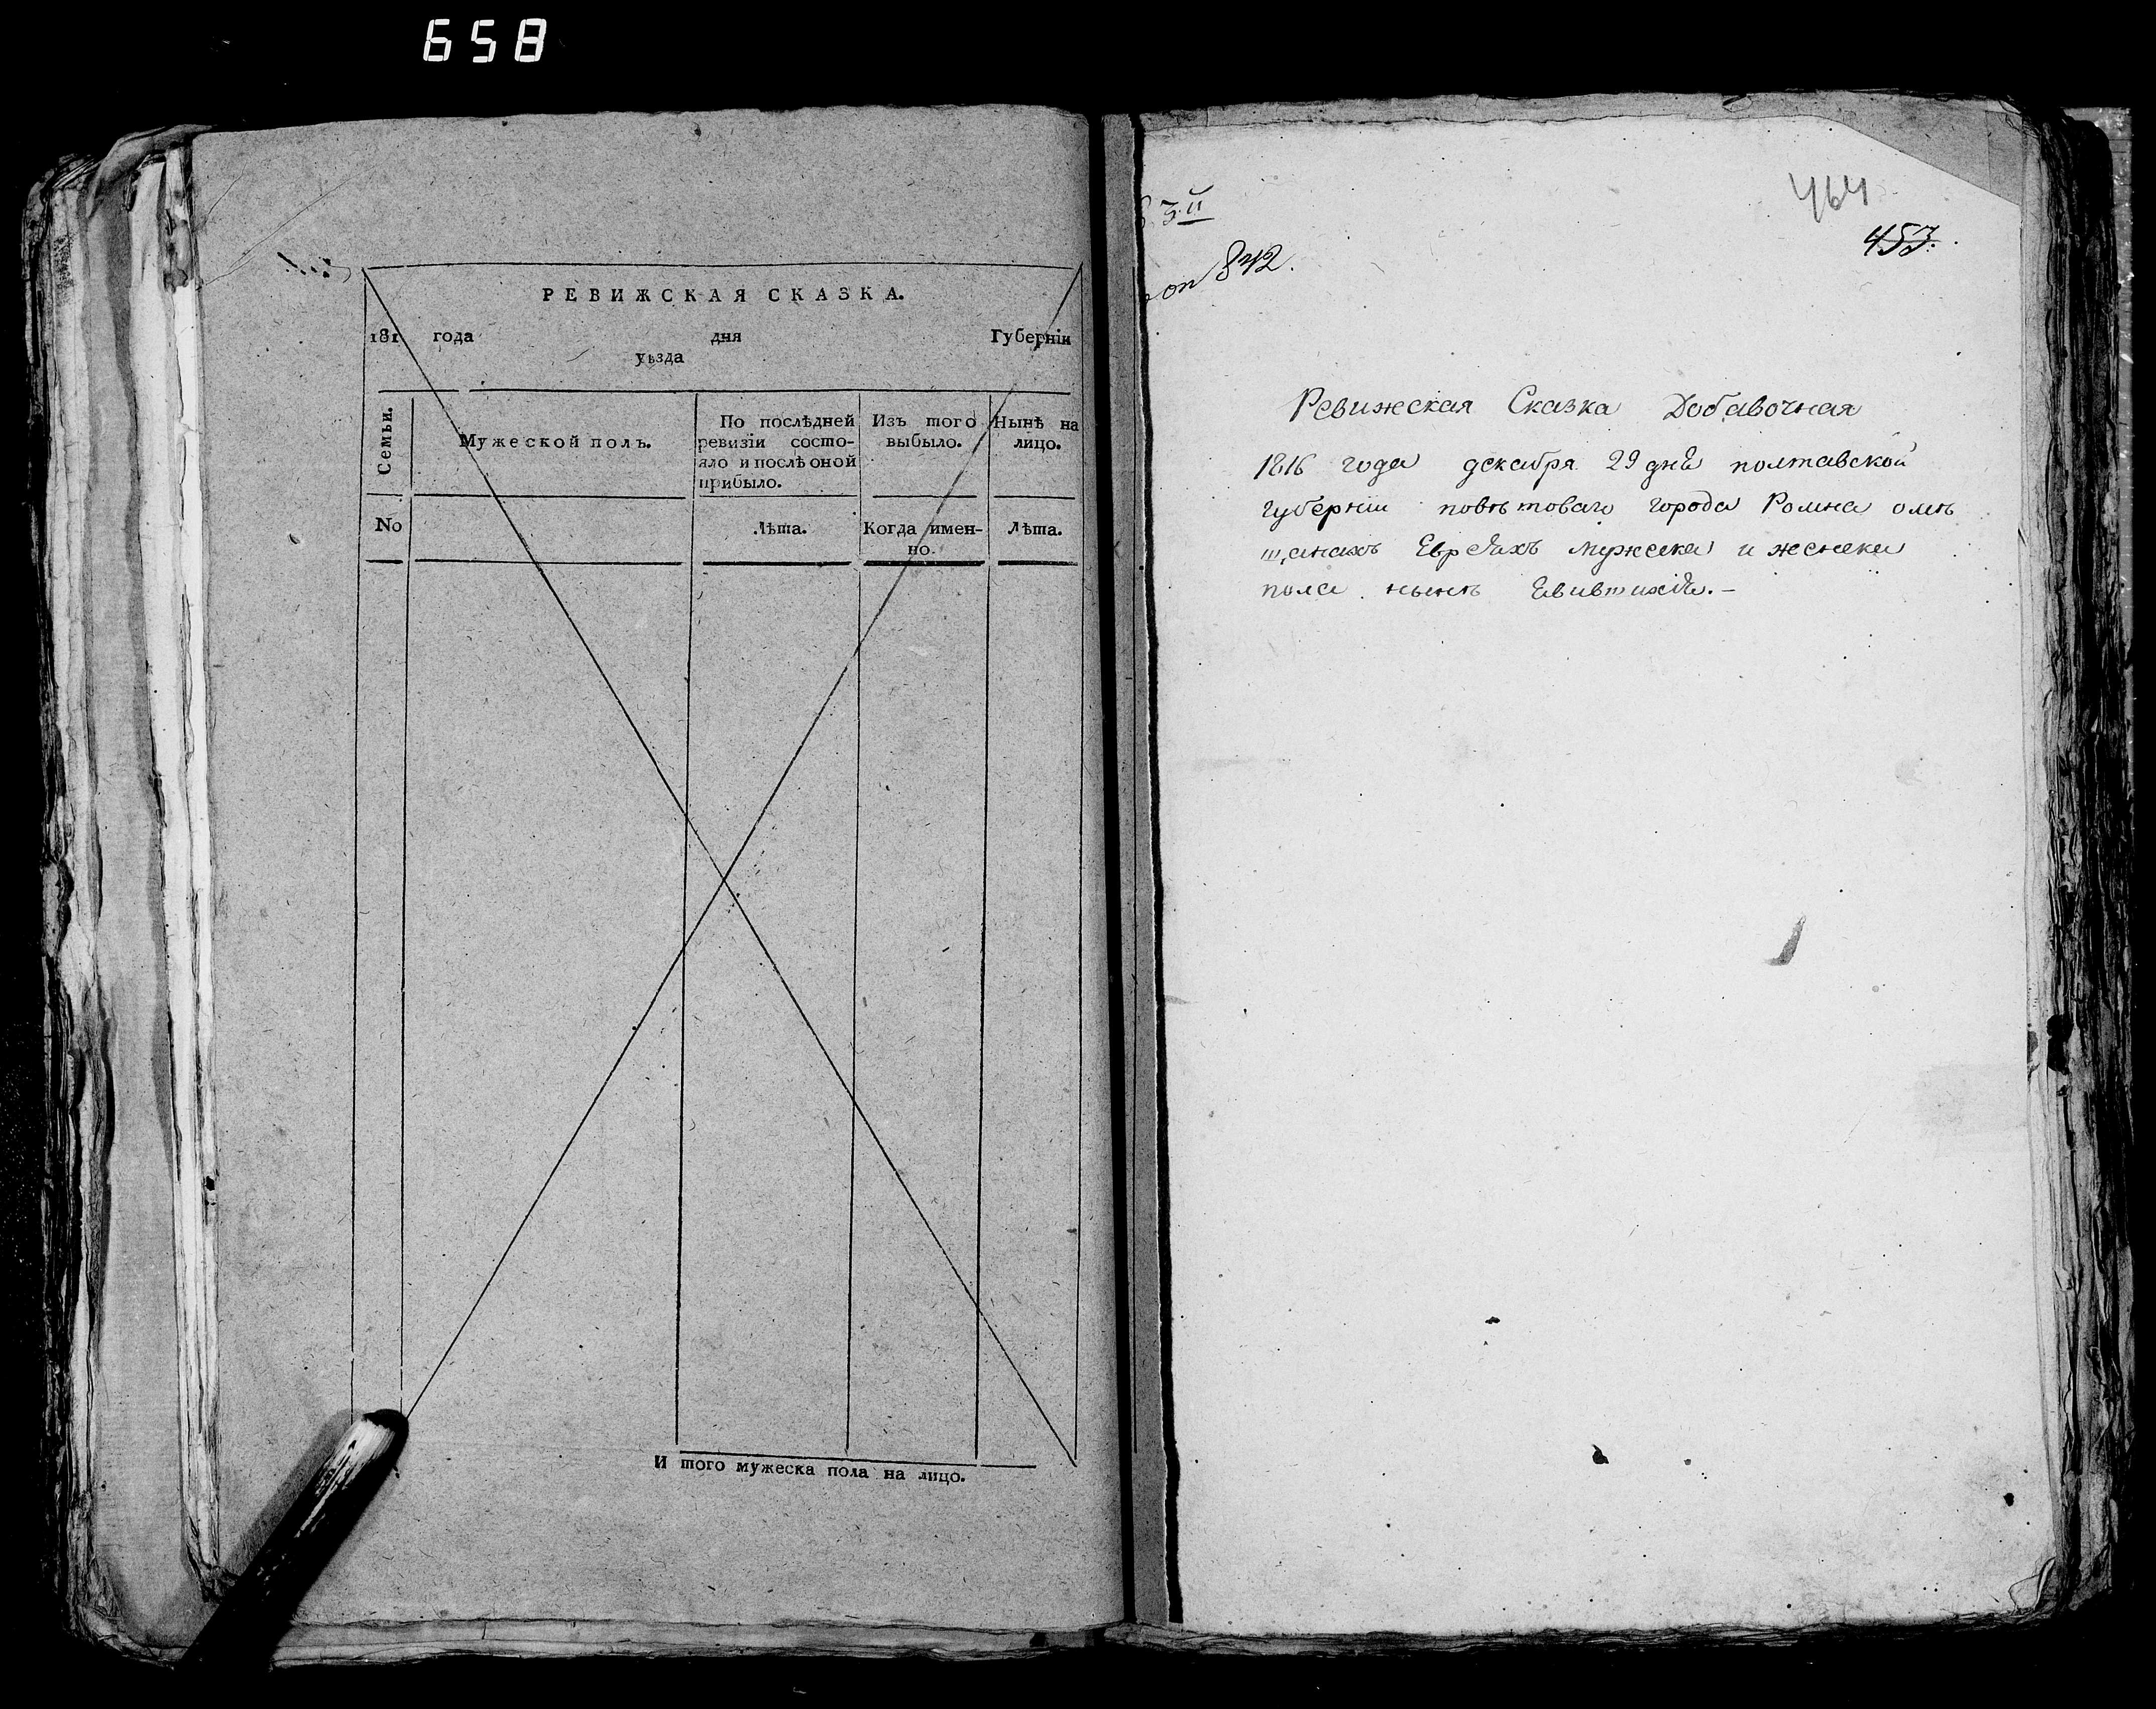 658
РЕВИЖСКАЯ СКАЗКА.
181 года дня Губерніи
уѣзда
Семьи.
Мужеской полъ.
По послѣдней
ревизіи состо-
яло и послѣ оной
прибыло.
Изъ того
выбыло.
Нынѣ на
лицо.
No
Лѣта.
Когда имен-
но.
Лѣта.
И того мужеска пола на лицо.
3й
842.
464
453.
Ревижская Сказка Добавочная
1816 года декабря 29 дня полтавской
губерніи повѣтоваго города Ромна омѣ
щанахъ Евреяхъ мужска и женска
пола нынѣ